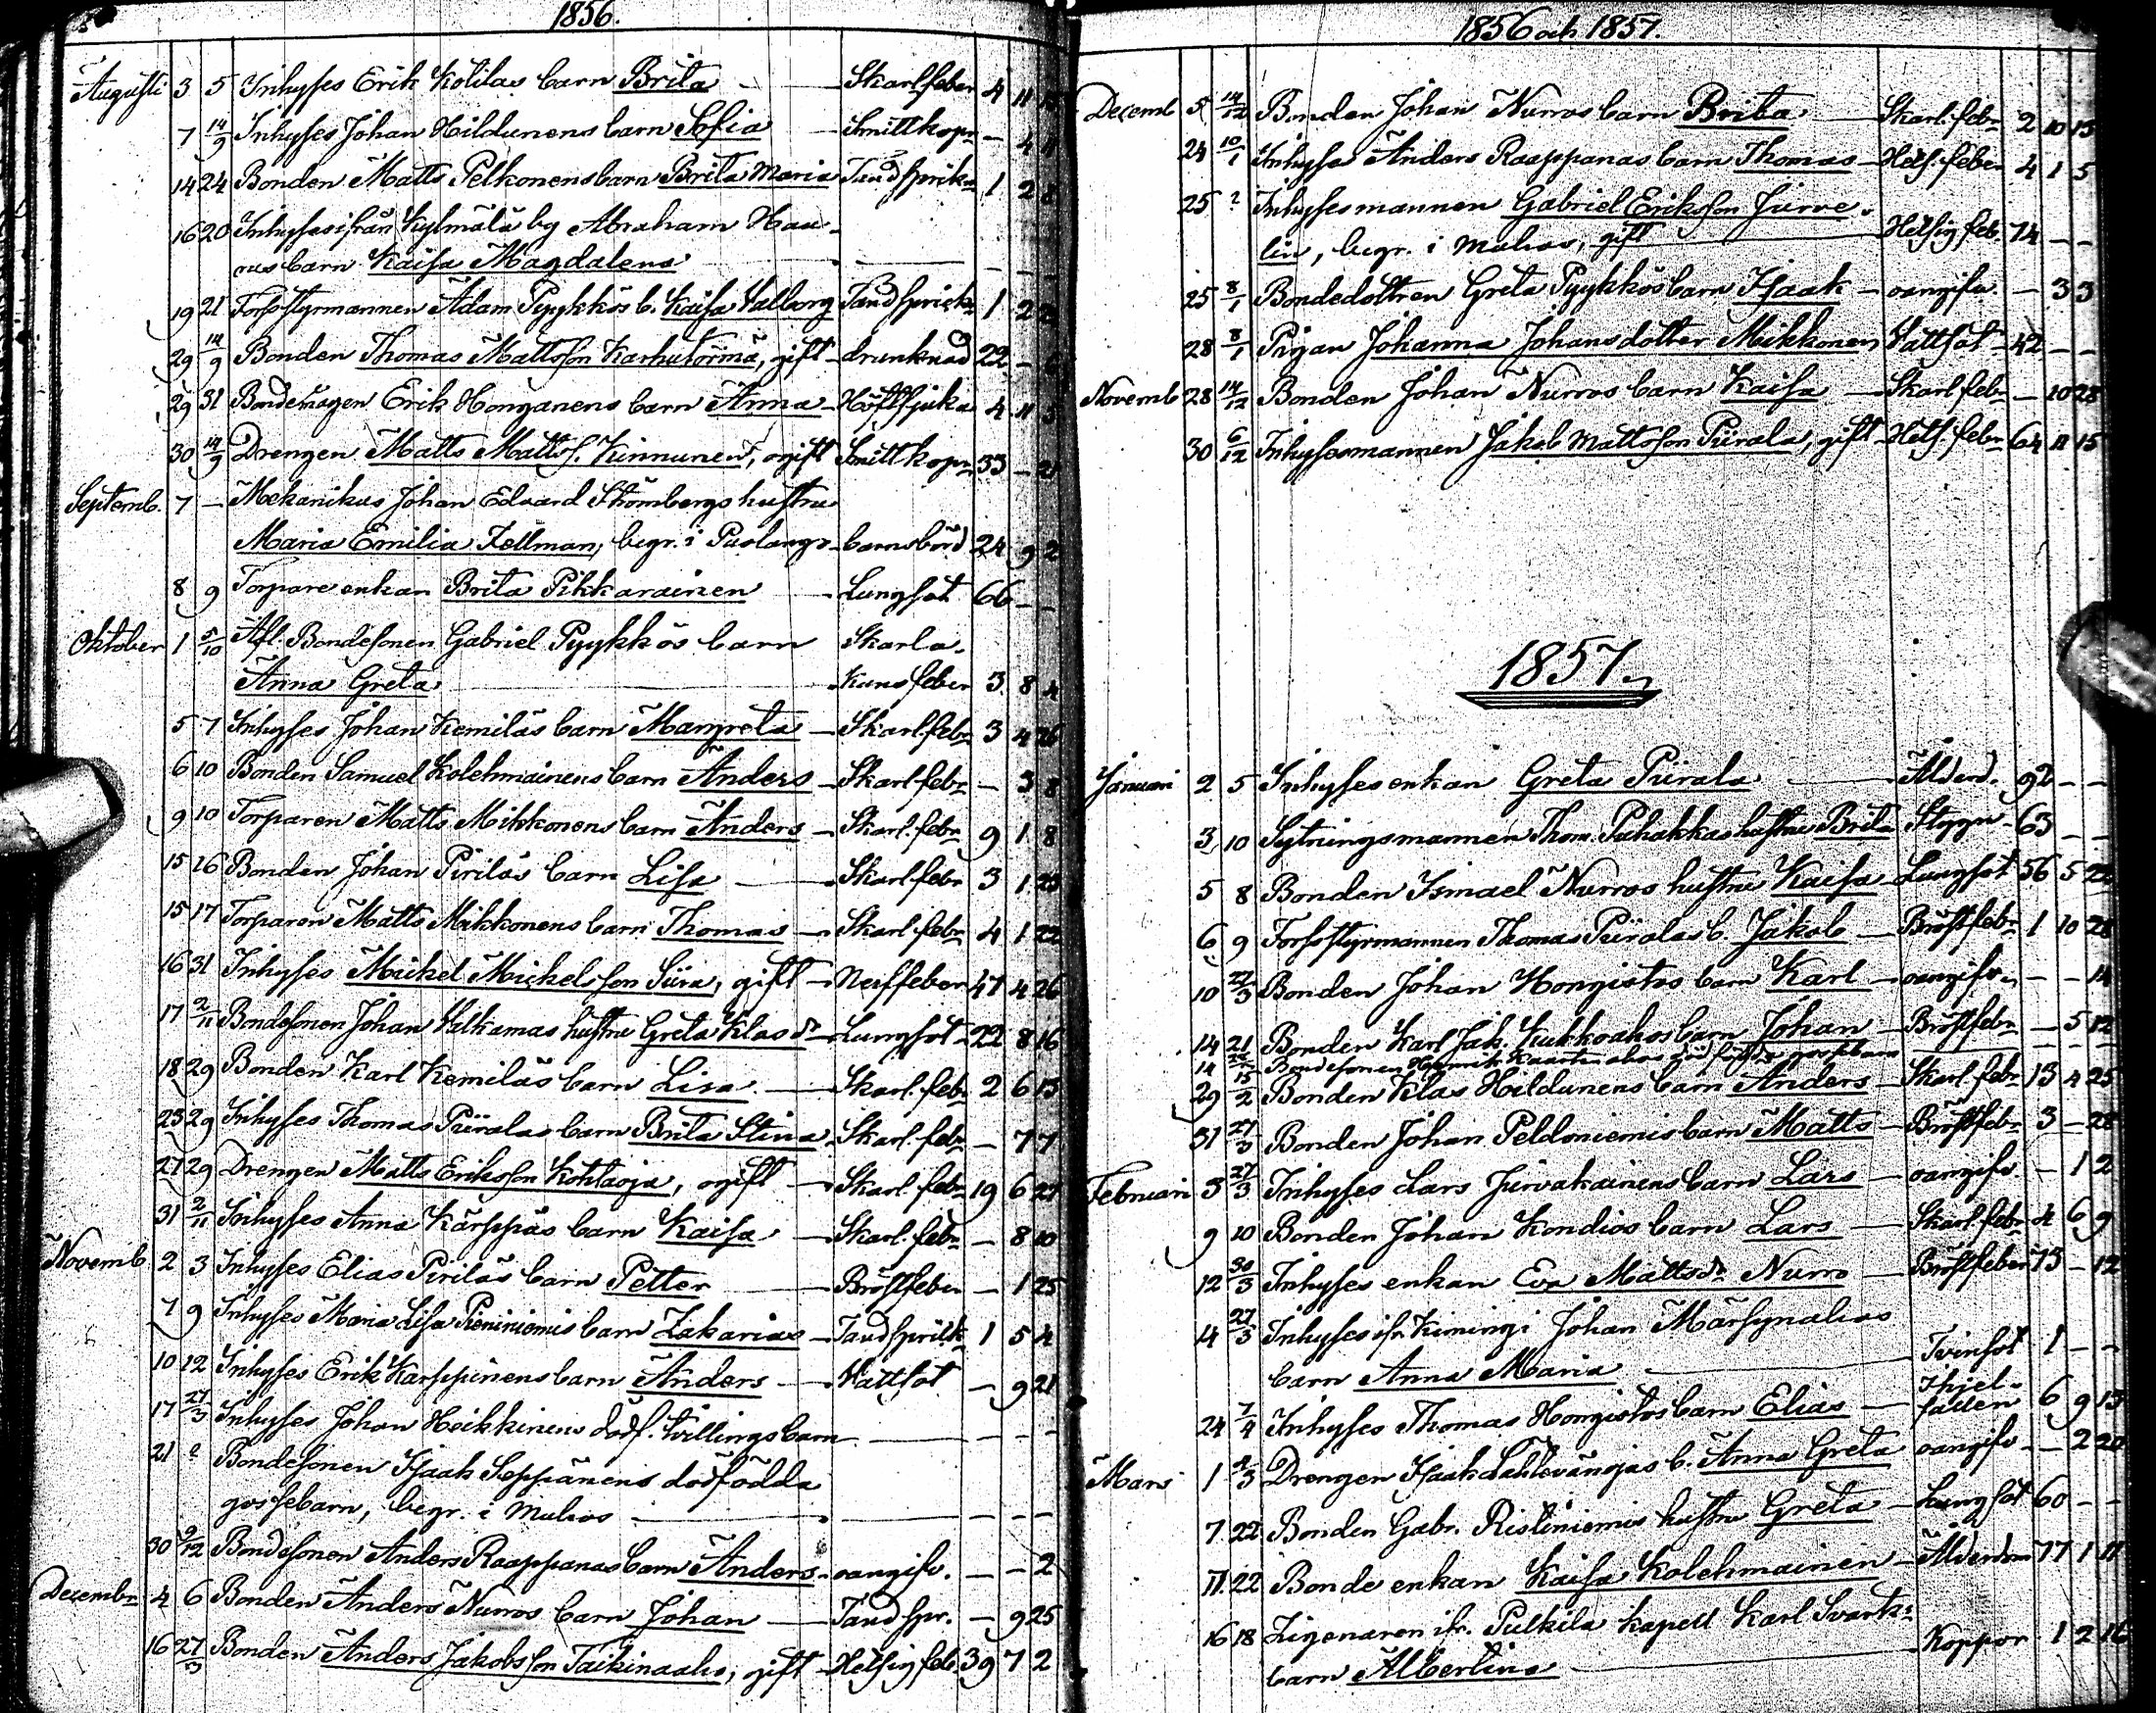 1856.
Augusti 3 5 Inhyses Erik Kotilas barn Brita Skarl.feber 4 11 15
7 14/9 Inhyses Johan Hildunens barn Sofia Smittkopr – 4 11
14 24 Bonden Matts Pelkonens barn Brita Maria Tandsprikn 1 2 8
16 20 Inhyses ifrån Kylmälä by Abraham Hau-
nus barn Kaisa Magdalena – – –
19 21 Torpstyrmannen Adam Pyykkös b. Kaisa Valborg Tandsprickn 1 2 23
29 14/9 Bonden Thomas Mattsson Karhutörmä, gift drunknad 22 –
29 31 Bondemågen Erik Honganens barn Anna Höftsjuka 4 11 3
30 14/9 Drengen Matts Matts. Kinnunen, ogift Smittkopr 33 – 21
Septemb. 7 – Mekanikus Johan Edvard Strömbergs hustru
Maria Emilia Zellman, begr. i Puolango barnsbörd 24 9 2
8 9 Torpare enkan Brita Pikkarainen Lungsot 66 – –
Oktober 1 5/10 Afl. Bondesonen Gabriel Pyykkös barn Skarla-
Anna Greta kansfeber 3 8 4
5 7 Inhyses Johan Kemiläs barn Margreta Skarl.febr 3 4 26
6 10 Bonden Samuel Kolehmainens barn Anders Skarl.febr – 3 8
9 10 Torparen Matts Mikkonens barn Anders Skarl.febr 9 1 8
15 16 Bonden Johan Piriläs barn Lisa Skarl.febr 3 1 23
15 17 Torparen Matts Mikkonens barn Thomas Skarl.febr 4 1 22
16 31 Inhyses Mickel Mickelsson Siira, gift Nerffeber 47 4 26
17 2/11 Bondesonen Johan Valkamas hustru Greta Klasdr Lungsot 22 8 16
18 29 Bonden Karl Kemiläs barn Lisa Skarl.febr 2 6 13
23 29 Inhyses Thomas Piiralas barn Brita Stina Skarl.febr – 7 7
27 29 Drengen Matts Eriksson Kohtaoja, ogift Skarl.febr 19 6 27
31 2/11 Inhyses Anna Kärppäs barn Kaisa Skarl.febr – 8 10
Novemb 2 3 Inhyses Elias Piriläs barn Petter Bröstfeber – 1 25
7 9 Inhyses Maria Lisa Pieniniemis barn Zakarias Tandsprikn 1 5 4
10 12 Inhyses Erik Karppinens barn Anders Vattsot – 9 21
17 27/3 Inhyses Johan Heikkinens dödf. tvillingsbarn – – –
21 ? Bondesonen Isaak Seppänens dödfödda
gossebarn, begr. i Muhos – – –
30 9/12 Bondesonen Anders Raappanas barn Anders oangifv. – – 2
Decembr 4 6 Bonden Anders Nurros barn Johan Tandspr. – 9 25
16 27/3 Bonden Anders Jakobsson Taikinaaho, gift Hetsig feb. 39 7 2
1856 och 1857.
Decemb 5 14/12 Bonden Johan Nurros barn Brita Skarl.febr 2 10 13
24 10/1 Inhyses Anders Raappanas barn Thomas Hets.feber 4 1 5
25 ? Inhysesmannen Gabriel Eriksson Järve-
lin, begr. i Muhos, gift Hetsig feb. 74 – –
25 8/1 Bondedottren Greta Pyykkös barn Isaak oangifv. – 3 3
28 8/1 Pigan Johanna Johansdotter Mikkonen Vattsot 42 – –
Novemb 28 14/12 Bonden Johan Nurros barn Kaisa Skarl.febr – 10 28
30 6/12 Inhysesmannen Jakob Mattsson Piirala, gift Hets.febr 64 11 15
1857.
Januari 2 5 Inhyses enkan Greta Piirala Ålderd. 92 – –
3 10 Sytningsmannen Thom. Puhakkas hustru Brita Stygn 63 – –
5 8 Bonden Ismael Nurros hustru Kaisa Lungsot 56 5 22
6 9 Torpstyrmannen Thomas Piiralas b. Jakob Bröstfebr 1 10 28
10 27/3 Bonden Johan Hongistos barn Karl oangifv. – – 14
14 21 Bonden Karl Jak. Kukkoahos barn Johan Bröstfebr – 5 12
14 Bondesonen Henrik dödfödda gossebarn – – –
29 15/2 Bonden Klas Hildunens barn Anders Skarl.febr 13 4 25
31 27/3 Bonden Johan Peldoniemis barn Matts Bröstfebr 3 – 28
Februari 3 27/3 Inhyses Lars Jurvakainens barn Lars oangifv. – 1 2
9 10 Bonden Johan Kondios barn Lars Skarl.febr 4 6 9
12 30/3 Inhyses enkan Eva Mattsdr Nurro Bröstfeber 73 – 12
14 27/3 Inhyses ifr. Kimingi Johan Märsynahos
barn Anna Maria Tvinsot 1 – –
24 7/4 Inhyses Thomas Hongistos barn Elias Ihjel-
fallen 6 9 13
Mars 1 2/3 Drengen Isaak Lahtevänojas b. Anna Greta oangifv. – 2 20
7 22 Bonden Gabr. Ristiniemis hustru Greta Lungsot 60 – –
11 22 Bonde enkan Kaisa Kolehmainen Ålderdom 77 1 11
16 18 Zigenaren ifr. Pulkila kapell Karl Svarts
barn Albertina Koppor 1 2 16